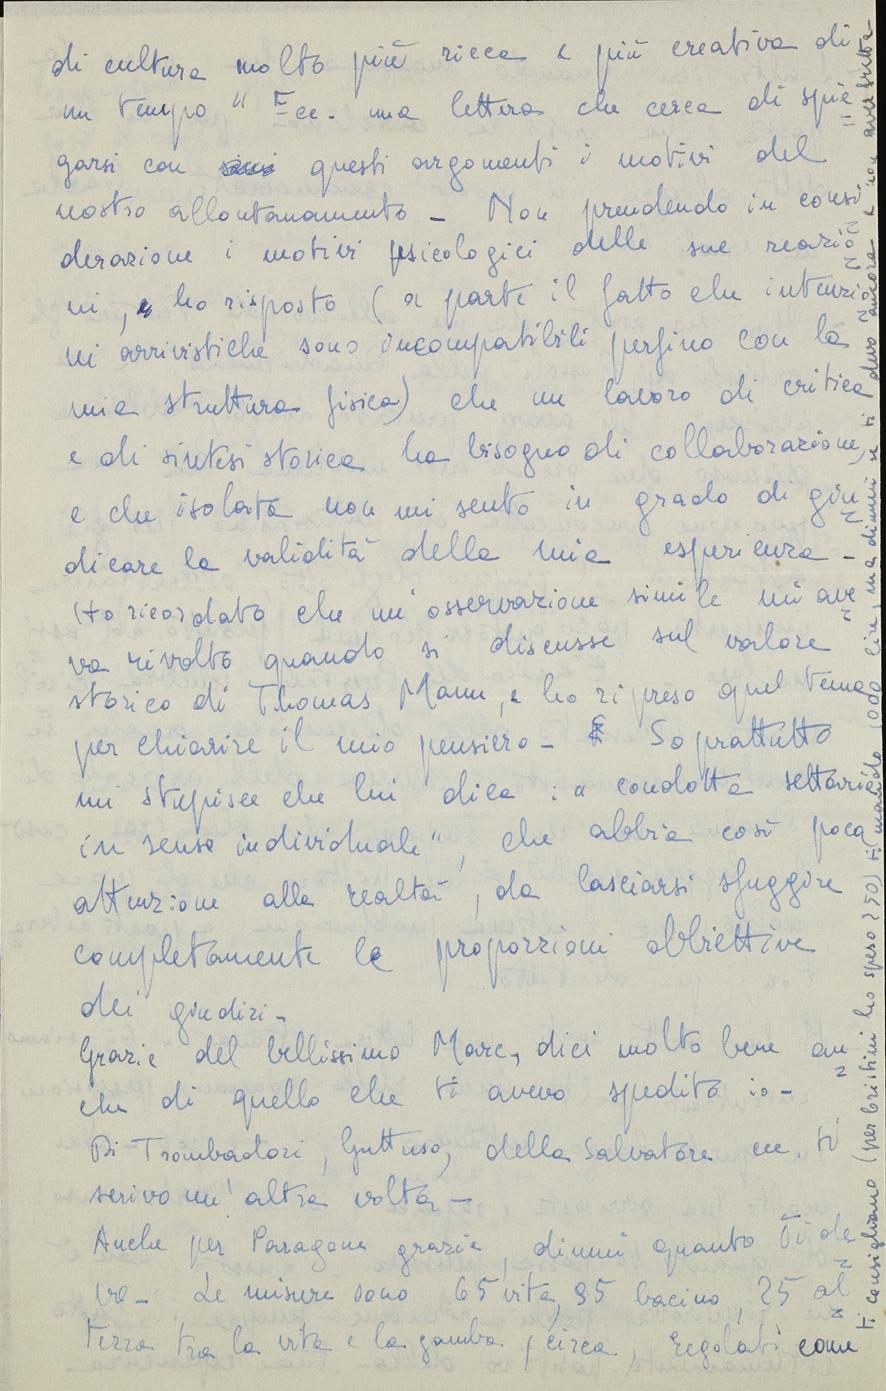 di cultura molto più ricca e più creativa di
un tempo" Ecc. una lettera che cerca di spie=
garsi con questi argomenti i motivi del
nostro allontanamento - Non prendendo in consi=
derazione i motivi psicologici delle sue reazio=
ni, ho risposto (a parte il fatto che intenzio=
ni arrivistiche sono incompatibili perfino con la
mia struttura fisica) che un lavoro di critica
e di sintesi storica ha bisogno di collaborazione,
e che isolata non mi sento in grado di giu=
dicare la validità della mia esperienza -
Ho ricordato che un'osservazione simile mi ave=
va rivolto quando si discusse sul valore
storico di Thomas Mann, e ho ripreso quel tema
per chiarire il mio pensiero - Soprattutto
mi stupisce che lui dica: "condotta settaria
in senso individuale", che abbia così poca
attenzione alla realtà, da lasciarsi sfuggire
completamente le proporzioni obbiettive
dei giudizi -
Grazie del bellissimo Marc, dici molto bene an=
che di quello che ti avevo spedito io -
Di Trombadori, Guttuso, della Salvatore ecc. ti
scrivo un'altra volta -
Anche per Paragone grazie, dimmi quanto Ti de=
vo - Le misure sono 65 vita, 95 bacino, 25 al=
tezza tra la vita e la gamba, circa, Regolati come
ti consigliano (per bikini ho speso 250) ti mando 1000 lire, ma dimmi se ti devo ancora e non aver fretta